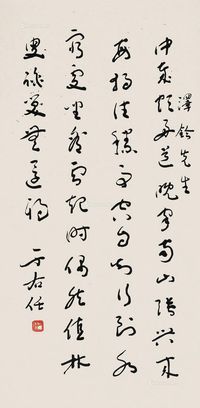 澤鈴先生
中歲頗好道晚家南山陲興來
每獨往勝事空自知行到水
窮處坐看雲起時偶然值林
叟談笑無還期
于右任